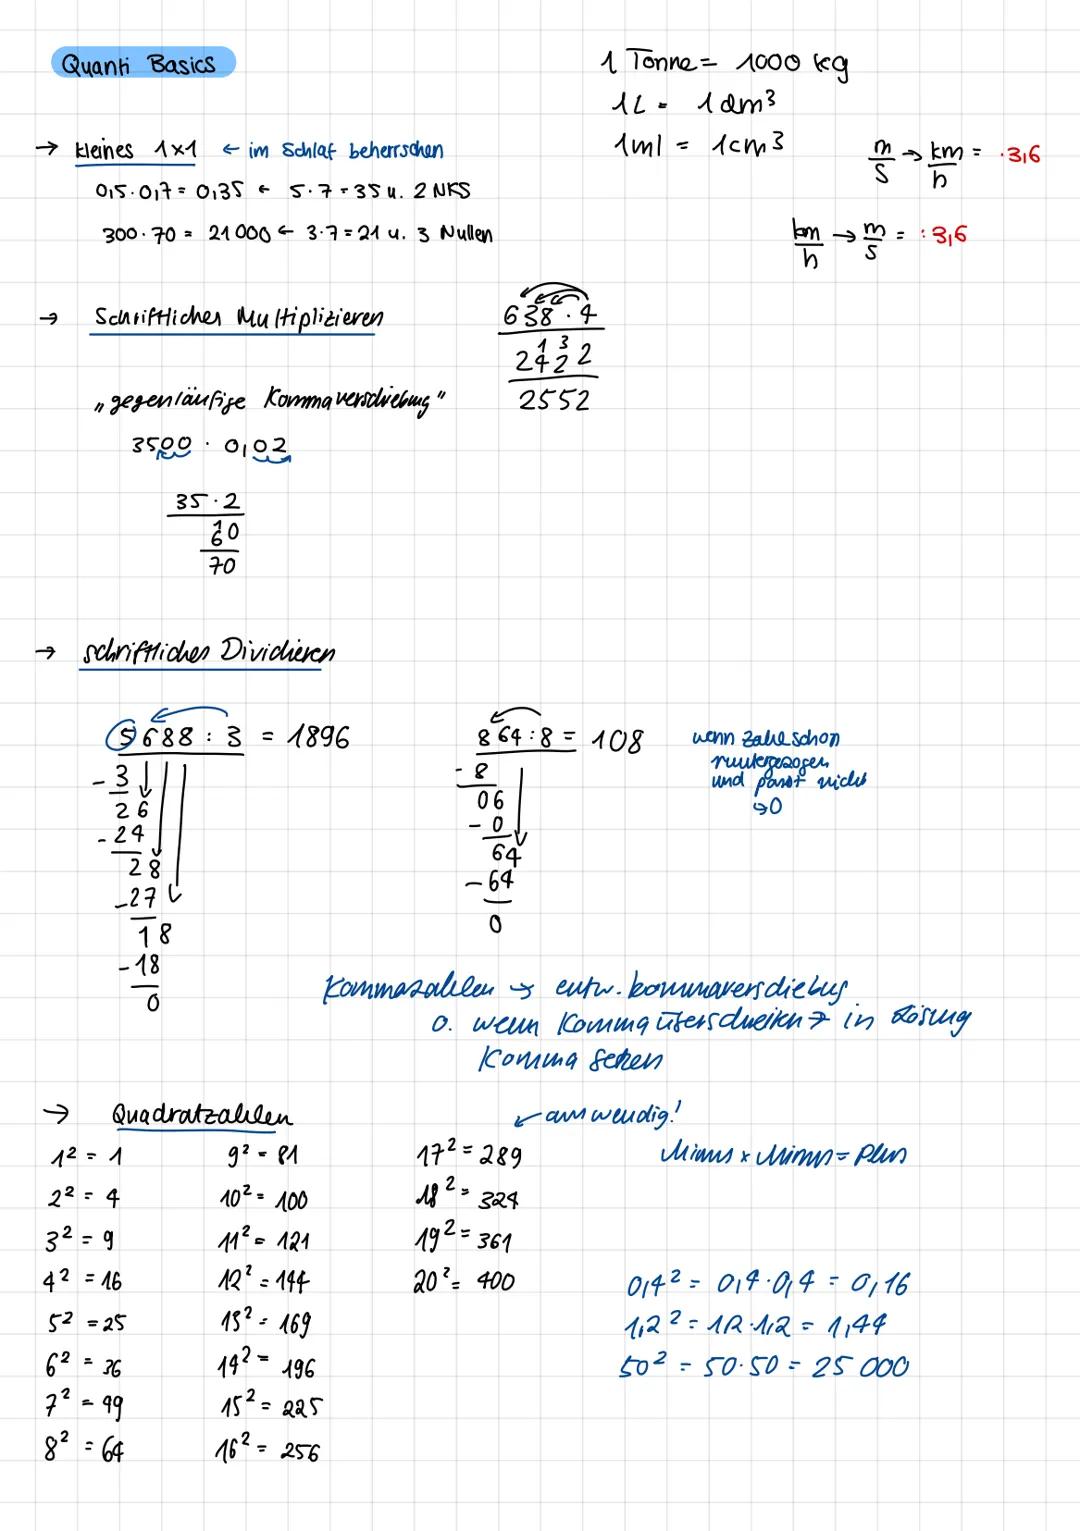 Quanti Basics
1 Tonne = 1000 kg
1L = 1dm³
1ml = 1cm³
m/s → km/h = ·3,6
km/h → m/s = :3,6
→ kleines 1x1 ← im Schlaf beherrschen
0,5·0,7 = 0,35 ← 5·7=35 u. 2 NKS
300·70 = 21000 ← 3·7=21 u. 3 Nullen
→ Schriftliches Multiplizieren
638·4
1 3
2422
2552
„gegenläufige Kommaverschiebung"
3500 · 0,02
35·2
1
60
70
→ schriftliches Dividieren
5688 : 3 = 1896
-3
26
-24
28
-27
18
-18
0
864:8 = 108
-8
06
-0
64
-64
0
wenn Zahl schon
runtergezogen
und passt nicht
↳0
Kommazahlen → entw. kommaverschiebug
o. wenn Komma überschreiten → in Lösung
Komma setzen
→ Quadratzahlen
← auswendig!
1² = 1
2² = 4
3² = 9
4² = 16
5² = 25
6² = 36
7² = 49
8² = 64
9² = 81
10² = 100
11² = 121
12² = 144
13² = 169
14² = 196
15² = 225
16² = 256
17² = 289
18² = 324
19² = 361
20² = 400
Minus x Minus = Plus
0,4² = 0,4·0,4 = 0,16
1,2² = 12·1,2 = 1,44
50² = 50·50 = 25 000